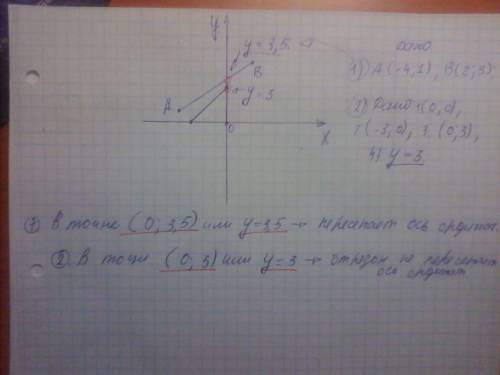 y
y = 3,5
B
A
y = 3
0
X
Дано
1) A(-4,1), B(2;3)
2) (0,0),
2 (-3,0), 3. (0;3),
4) y = 3
① В точке (0; 3,5) или y=3,5 → пересекает ось ординат.
②. В точке (0; 3) или y = 3 → отрезок не пересекает
ось ординат